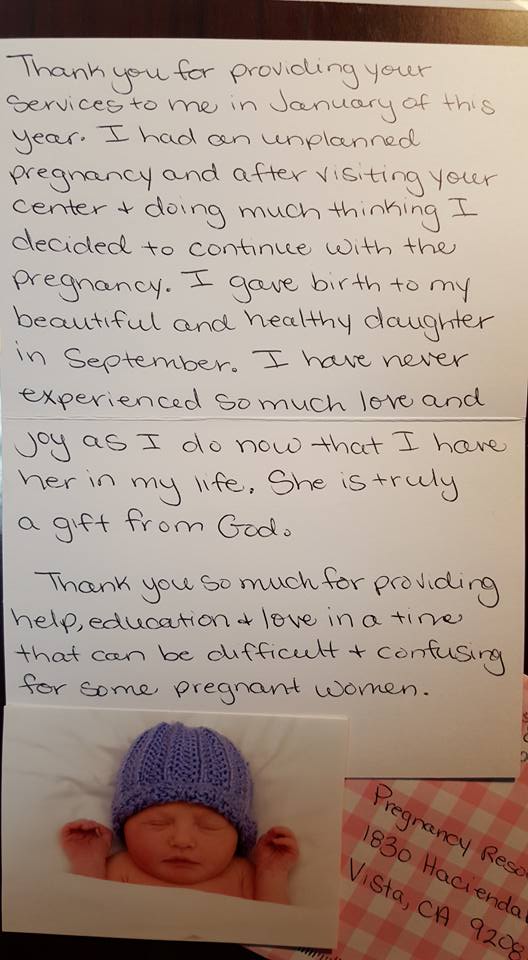 Thank you for providing your
services to me in January of this
year. I had an unplanned
pregnancy and after visiting your
center + doing much thinking I
decided to continue with the
pregnancy. I gave birth to my
beautiful and healthy daughter
in September. I have never
experienced so much love and
joy as I do now that I have
her in my life. She is truly
a gift from God.
Thank you so much for providing
help, education + love in a time
that can be difficult + confusing
for some pregnant women.
Pregnancy Reso
1830 Hacienda
Vista, CA 9208